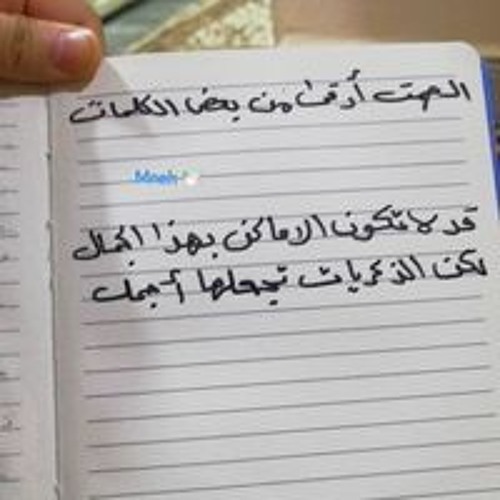 الصمت أرقى من بعض الكلمات
قد لا تكون الاماكن بهذا الجمال
لكن الذكريات تجعلها أجمل